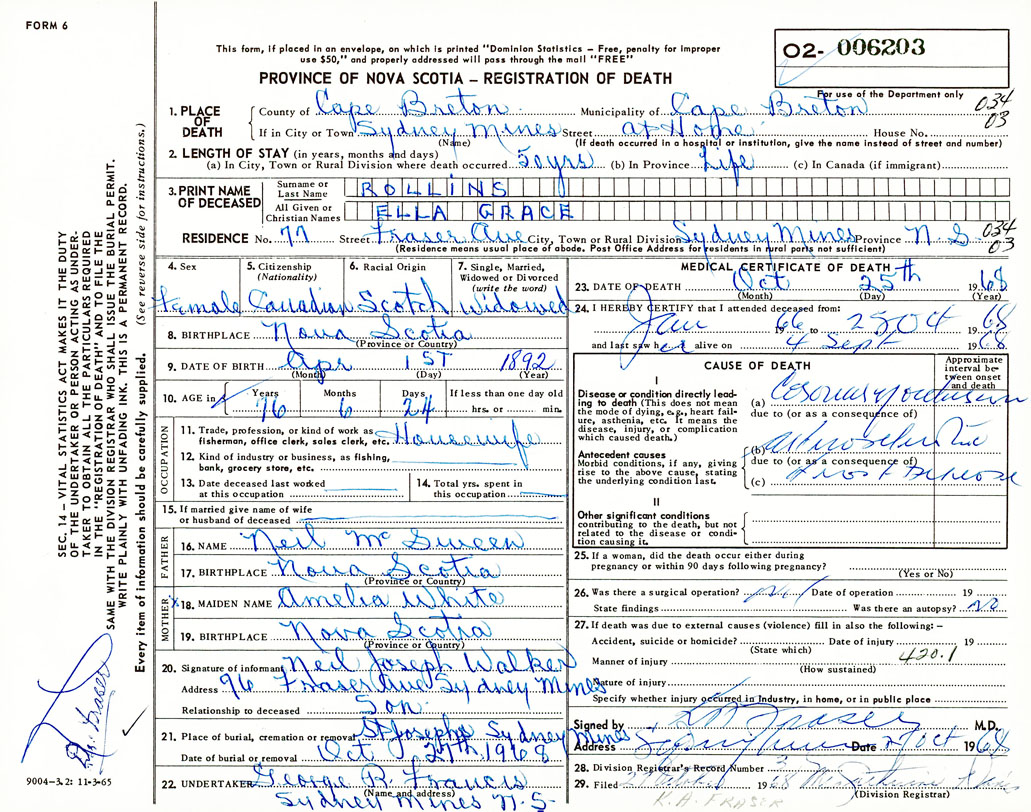 FORM 6
02- 006203
This form, if placed in an envelope, on which is printed "Dominion Statistics – Free, penalty for improper
use $50," and properly addressed will pass through the mail "FREE"
PROVINCE OF NOVA SCOTIA – REGISTRATION OF DEATH
For use of the Department only
034
03
1. PLACE OF DEATH County of Cape Breton Municipality of Cape Breton
If in City or Town Sydney Mines Street at Home House No.
(Name) (If death occurred in a hospital or institution, give the name instead of street and number)
2. LENGTH OF STAY (in years, months and days)
(a) In City, Town or Rural Division where death occurred 50 yrs (b) In Province Life (c) In Canada (if immigrant)
3. PRINT NAME OF DECEASED Surname or Last Name ROLLINS
All Given or Christian Names ELLA GRACE
RESIDENCE No. 77 Street Fraser Ave City, Town or Rural Division Sydney Mines Province N S
034
03
(Residence means usual place of abode. Post Office Address for residents in rural parts not sufficient)
4. Sex Female
5. Citizenship (Nationality) Canadian
6. Racial Origin Scotch
7. Single, Married, Widowed or Divorced (write the word) Widowed
8. BIRTHPLACE Nova Scotia
(Province or Country)
9. DATE OF BIRTH Apr 1ST 1892
(Month) (Day) (Year)
10. AGE in Years 76 Months 6 Days 24 If less than one day old
hrs. or min.
OCCUPATION
11. Trade, profession, or kind of work as
fisherman, office clerk, sales clerk, etc. Housewife
12. Kind of industry or business, as fishing,
bank, grocery store, etc.
13. Date deceased last worked
at this occupation
14. Total yrs. spent in
this occupation
15. If married give name of wife
or husband of deceased
FATHER
16. NAME Neil Mc Sween
17. BIRTHPLACE Nova Scotia
(Province or Country)
MOTHER
x 18. MAIDEN NAME Amelia White
19. BIRTHPLACE Nova Scotia
(Province or Country)
20. Signature of informant Neil Joseph Walker
Address 96 Fraser Ave Sydney Mines
Relationship to deceased Son.
21. Place of burial, cremation or removal St Josephs Sydney Mines
Date of burial or removal Oct 27th 1968
22. UNDERTAKER George R. Francis
(Name and address)
Sydney Mines N.S.
MEDICAL CERTIFICATE OF DEATH
23. DATE OF DEATH Oct 25th 1968
(Month) (Day) (Year)
24. I HEREBY CERTIFY that I attended deceased from:
Jan 66 to 25 Oct 1968
and last saw her alive on 4 Sept 1968
CAUSE OF DEATH
Approximate interval between onset and death
I
Disease or condition directly leading to death (This does not mean the mode of dying, e.g., heart failure, asthenia, etc. It means the disease, injury, or complication which caused death.)
(a)
due to (or as a consequence of)
Antecedent causes
Morbid conditions, if any, giving rise to the above cause, stating the underlying condition last.
(b)
due to (or as a consequence of)
(c)
II
Other significant conditions
contributing to the death, but not related to the disease or condition causing it.
25. If a woman, did the death occur either during
pregnancy or within 90 days following pregnancy?
(Yes or No)
26. Was there a surgical operation? Date of operation 19
State findings Was there an autopsy? No
27. If death was due to external causes (violence) fill in also the following: –
Accident, suicide or homicide? Date of injury 19
(State which)
420.1
Manner of injury
(How sustained)
Nature of injury
Specify whether injury occurred in Industry, in home, or in public place
Signed by Fraser M.D.
Address Date 27 Oct 1968
28. Division Registrar's Record Number
29. Filed 1968
(Division Registrar)
K. A. FRASER
SEC. 14 – VITAL STATISTICS ACT MAKES IT THE DUTY
OF THE UNDERTAKER OR PERSON ACTING AS UNDER-
TAKER TO OBTAIN ALL THE PARTICULARS REQUIRED
IN THE "REGISTRATION OF DEATH" AND TO FILE THE
SAME WITH THE DIVISION REGISTRAR WHO SHALL ISSUE THE BURIAL PERMIT.
WRITE PLAINLY WITH UNFADING INK. THIS IS A PERMANENT RECORD.
Every item of information should be carefully supplied. (See reverse side for instructions.)
Fraser
9004-3.2: 11-3-65